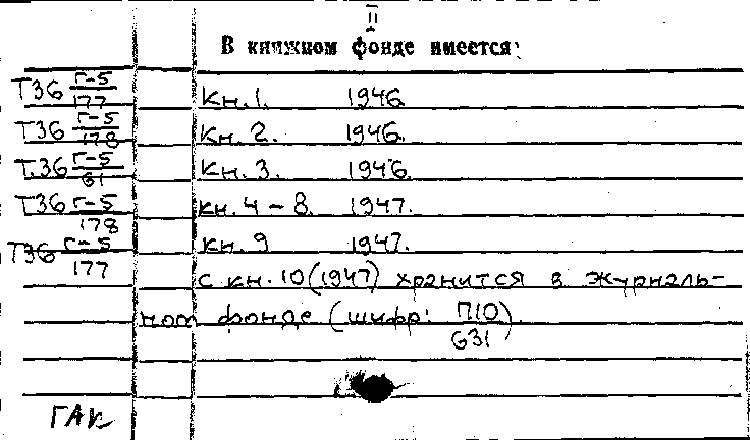 II
В книжном фонде имеется:
Т36 Г-5/177 Кн. 1. 1946.
Т36 Г-5/178 Кн. 2. 1946.
Т.36 Г-5/61 Кн. 3. 1946.
Т36 Г-5/178 кн. 4 – 8. 1947.
Т36 Г-5/177 кн. 9 1947.
с кн. 10 (1947) хранится в журналь-
ном фонде (шифр: П10/631)
ГАК